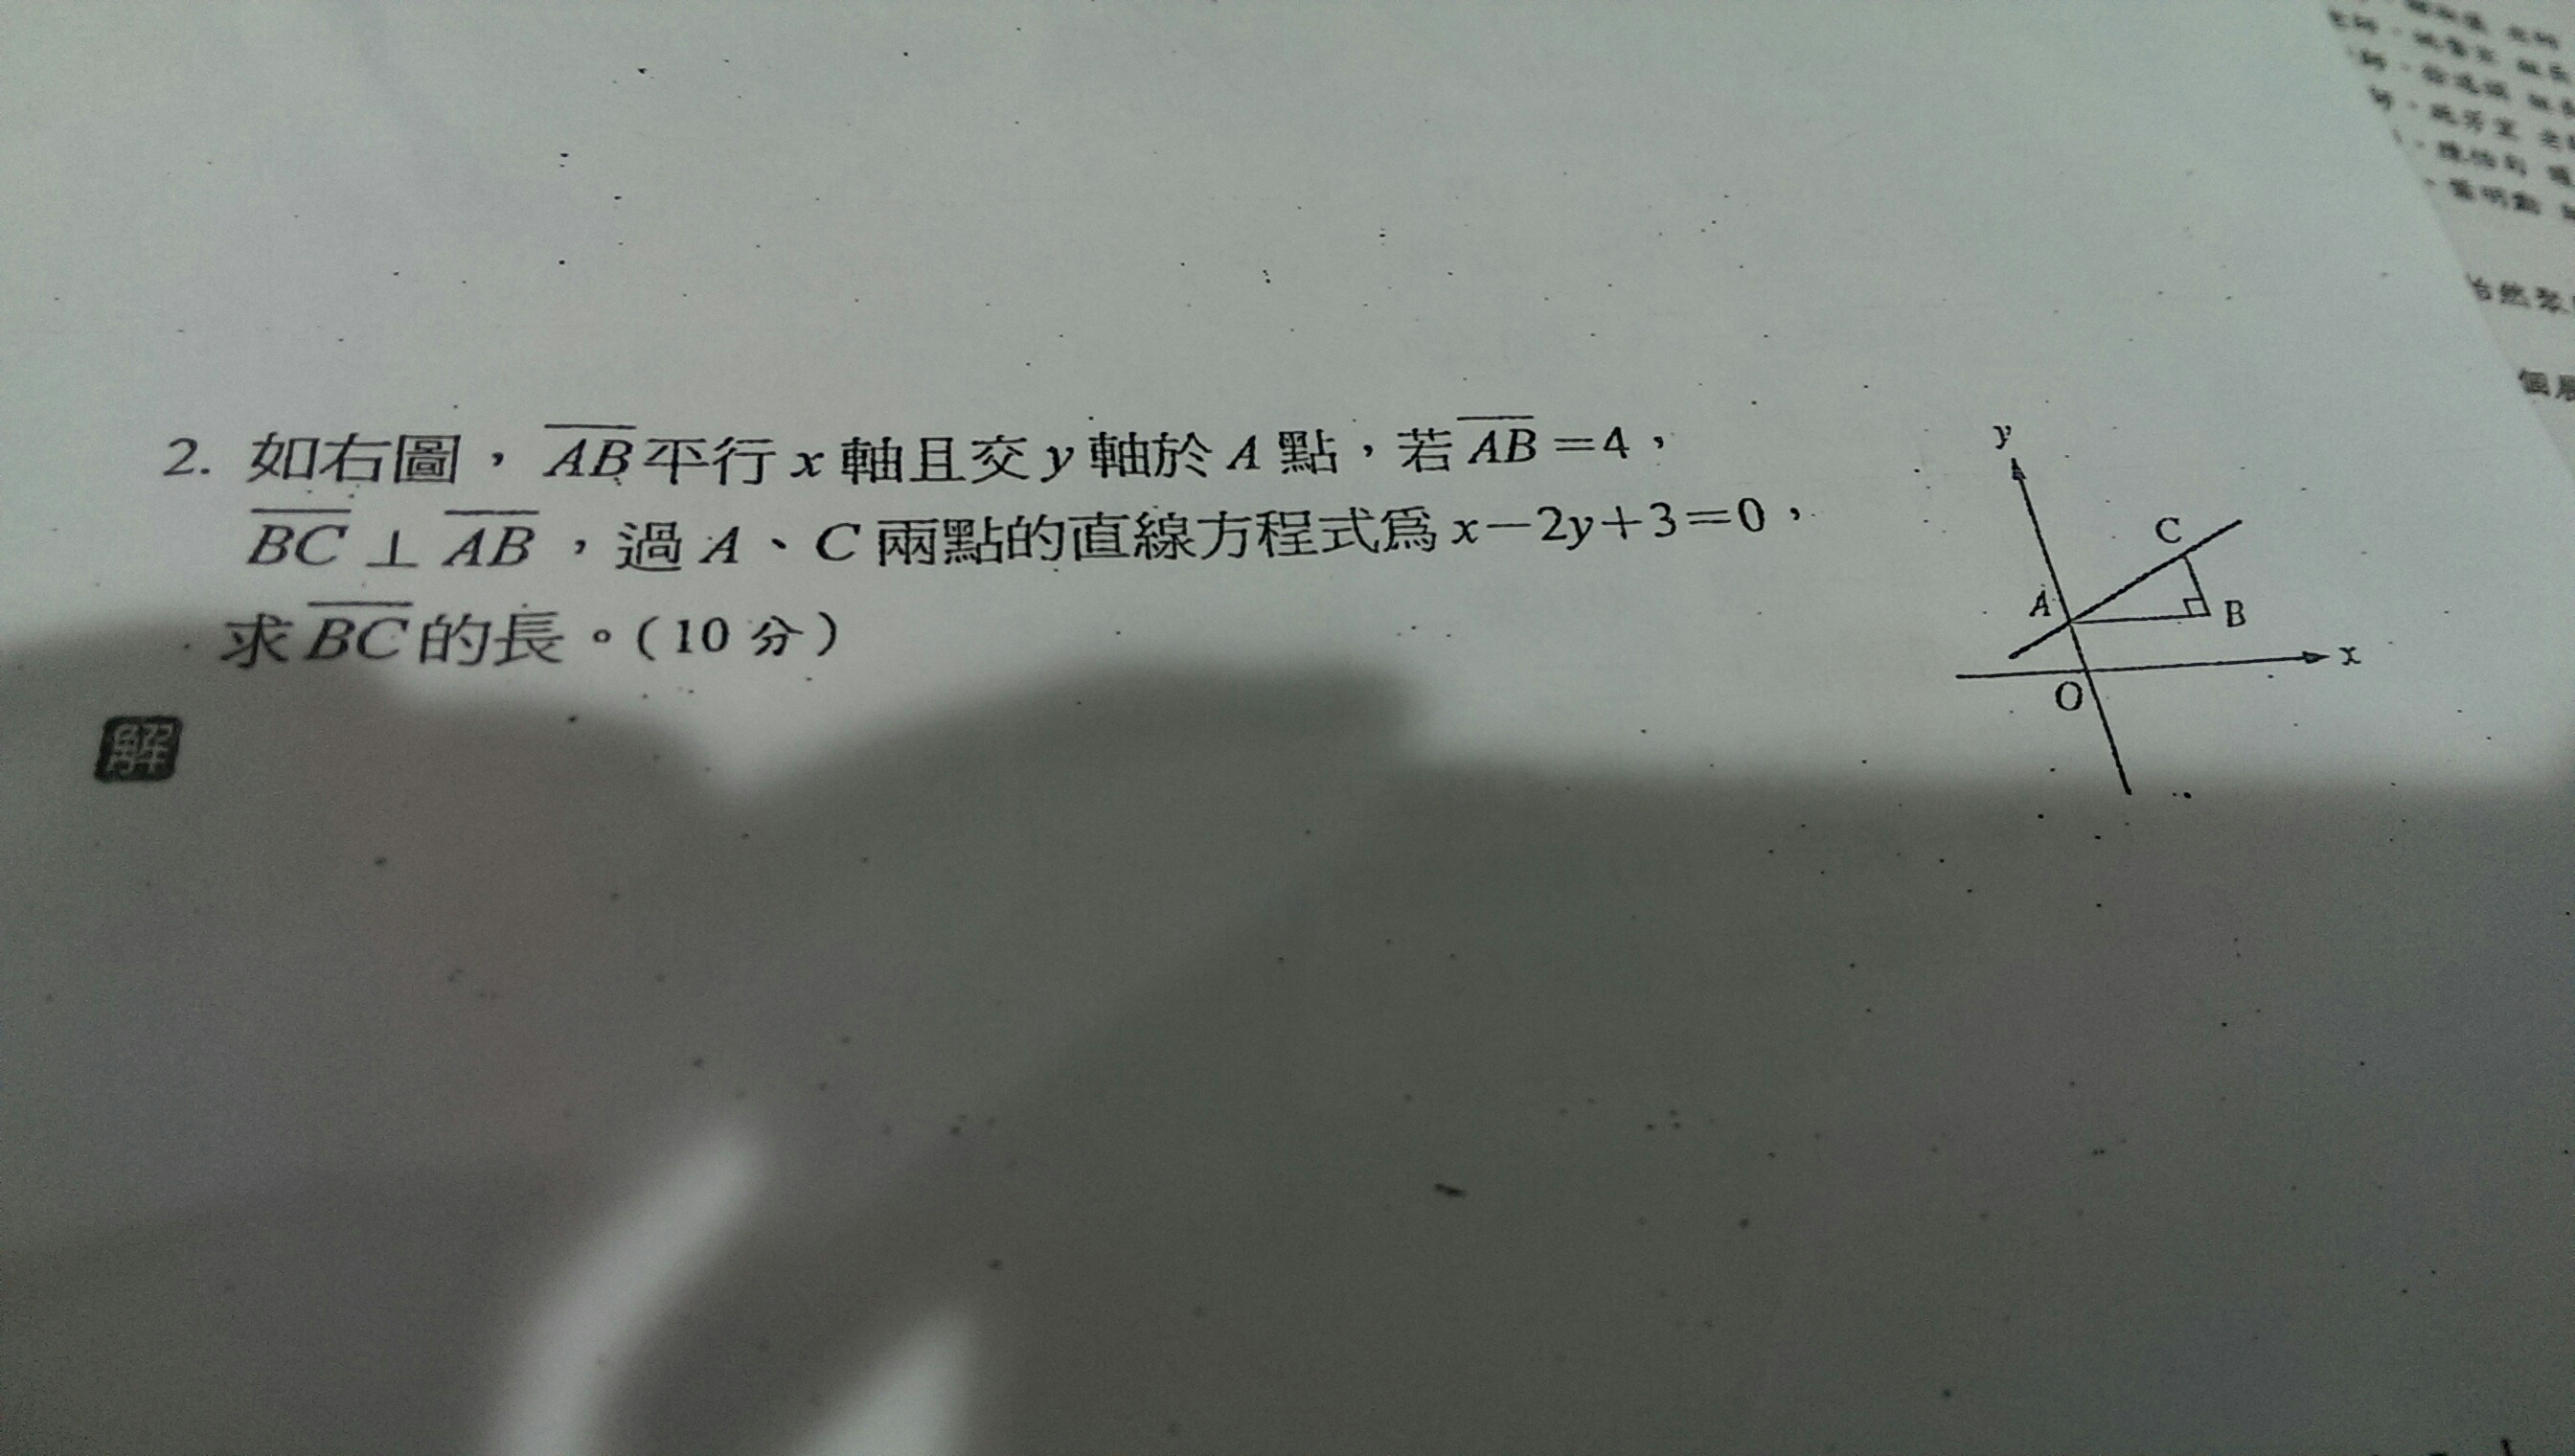 2. 如右圖，AB平行 x 軸且交 y 軸於 A 點，若 AB=4，
BC⊥AB，過 A、C 兩點的直線方程式為 x－2y＋3＝0，
求 BC 的長。(10 分)
y
C
A
B
x
O
解